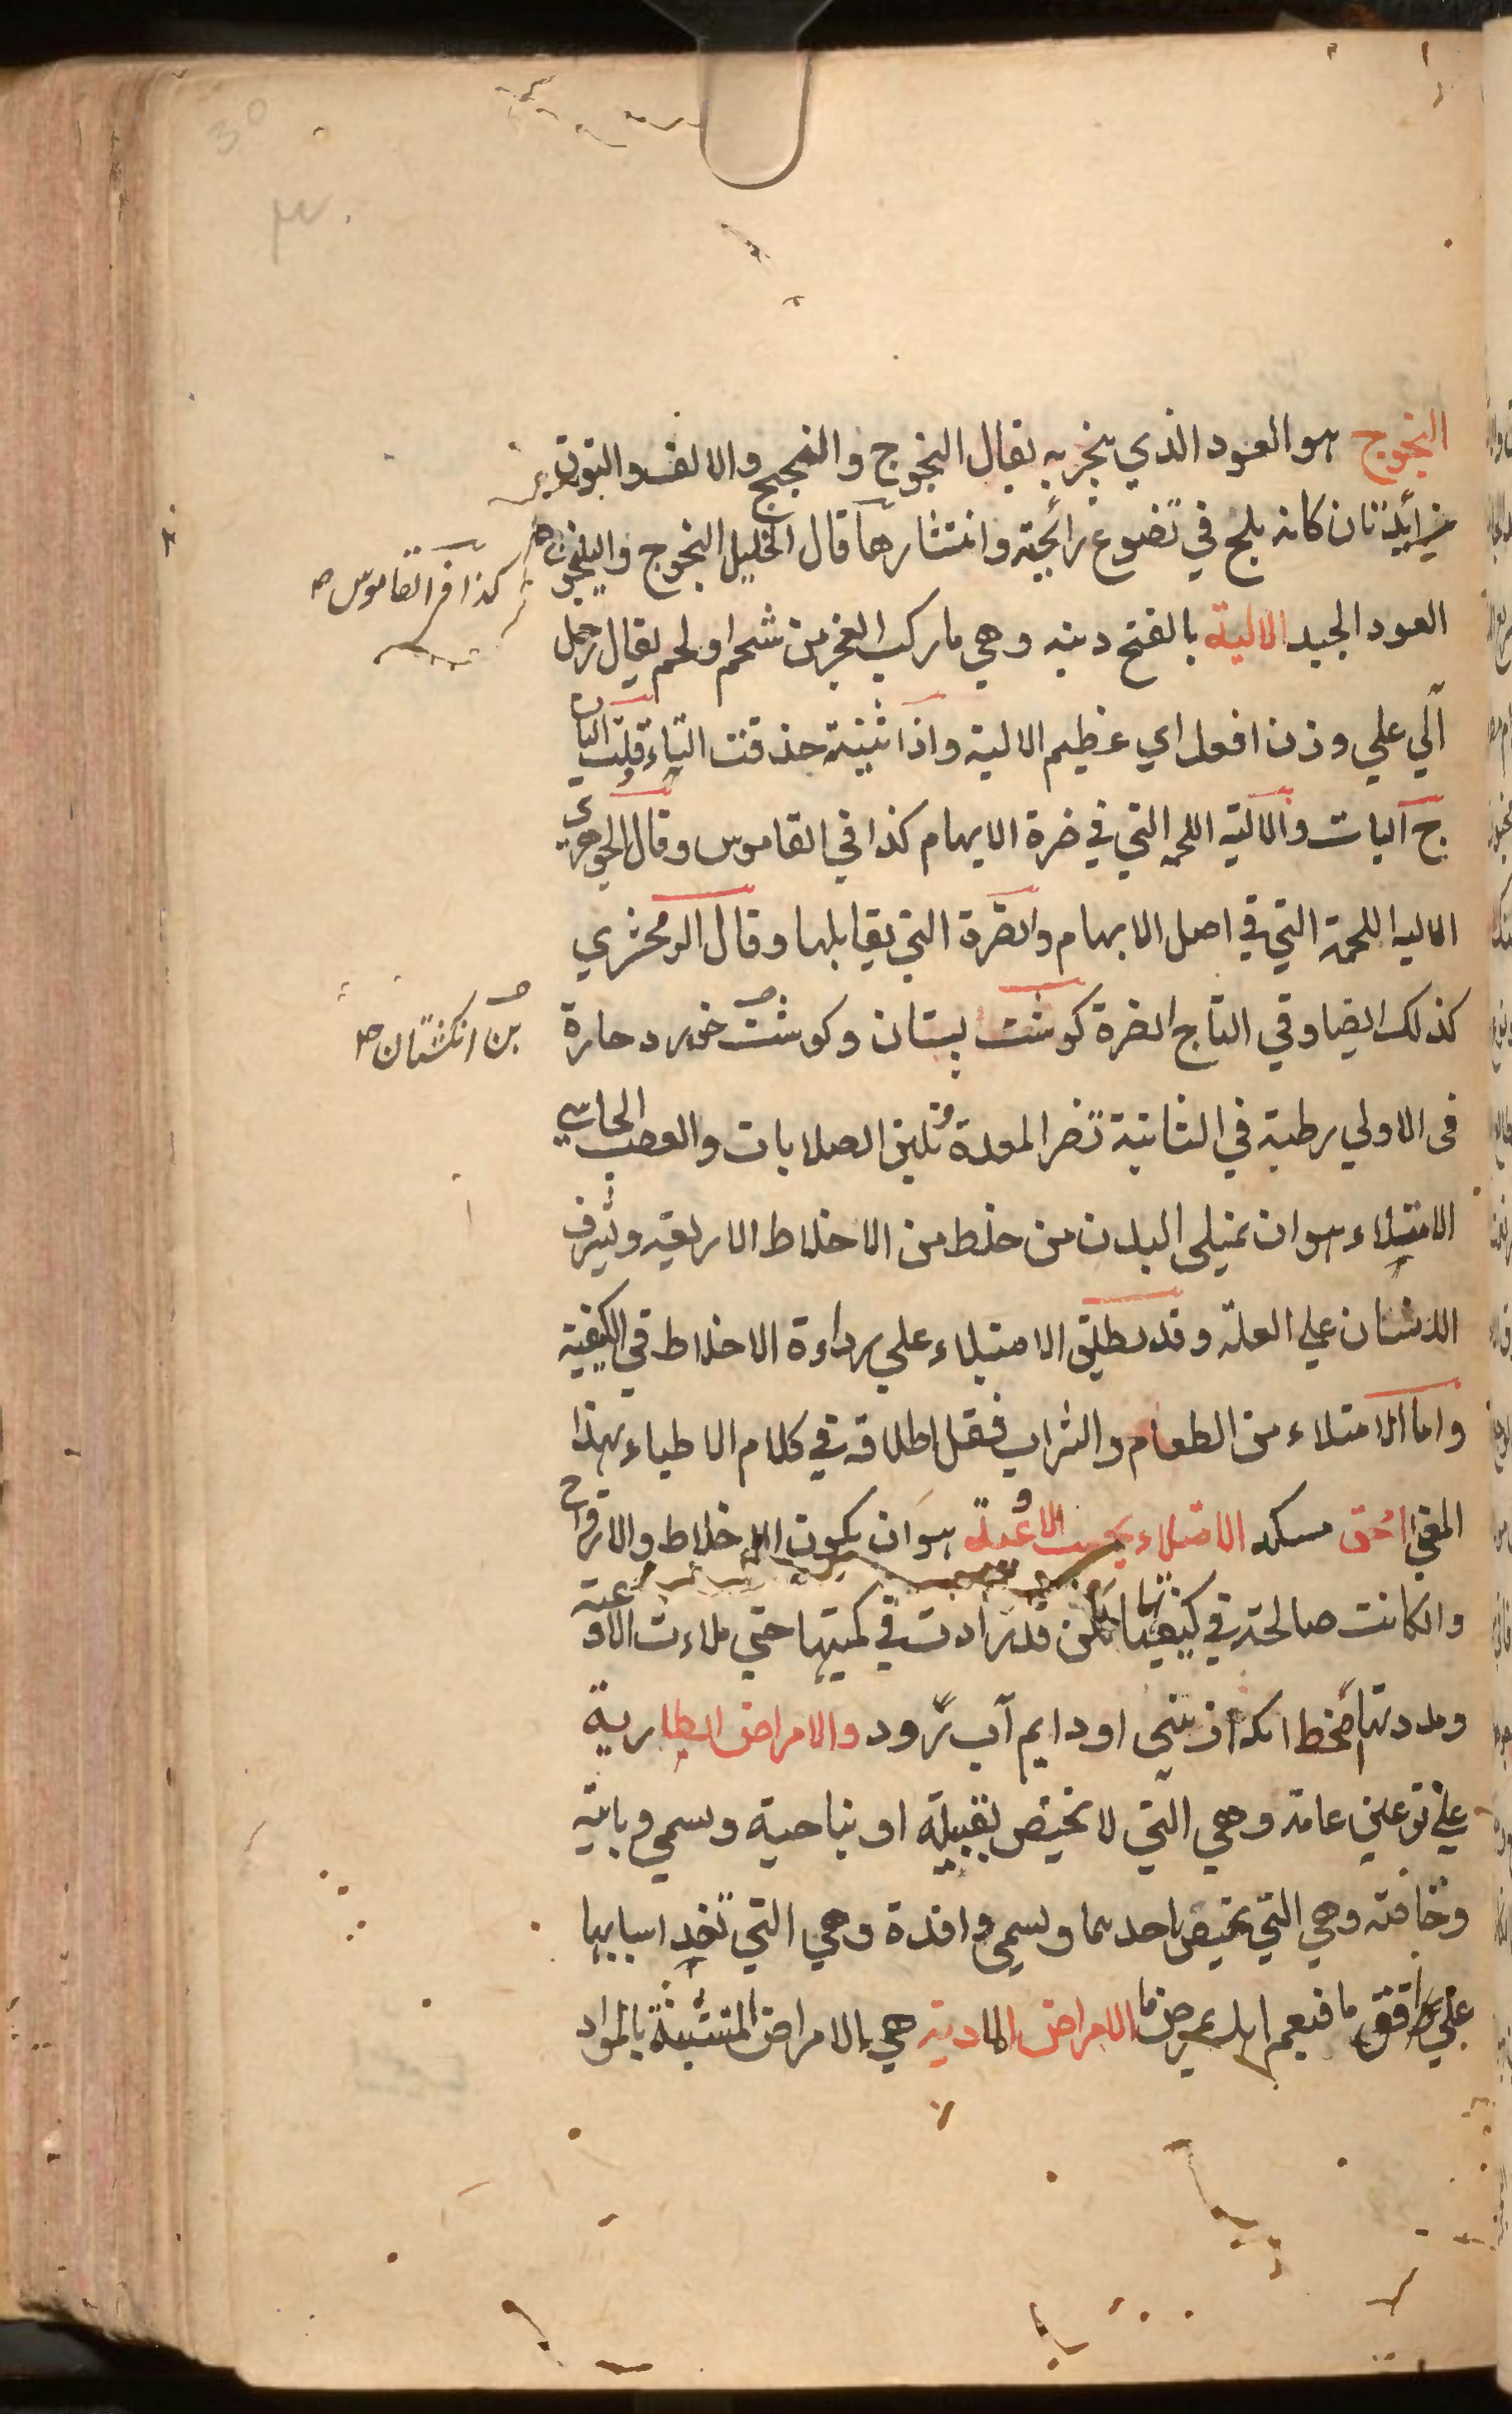 النجوج هو العود الذي يبخر به يقال النجوج والنجج والالف والنون
زائدتان كانه يلج في تضوع رائحته وانتشارها قال الخليل النجوج واليلنجوج هو
كذا في القاموس ص
العود الجيد الالية بالفتح دنبه وهي ما ركب العجز من شحم او لحم يقال رجل
آلي علي وزن افعل اي عظيم الالية واذا ثنيته حذفت التاء قلت اليان
ج اليات والالية اللحمة التي في ضرة الابهام كذا في القاموس وقال الجوهري
الاليه اللحمة التي في اصل الابهام والضرة التي يقابلها وقال الزمحشري
كذلك ايضا وفي التاج الضرة كوشت پستان وكوشت خورد حارة
بن انكشتان ص
في الاولي رطبة في الثانية تضر المعدة وتلين الصلابات والعصب الجاسي
الامتلاء هو ان يمتلي البدن من خلط من الاخلاط الاربعة ويشرف
الانسان علي العلة وقد يطلق الامتلاء علي رداءة الاخلاط في الكيفية
واما الامتلاء من الطعام والشراب فقل اطلاقه في كلام الاطباء بهذا
المعني الامتلاء بحسب الاوعية هو ان يكون الاخلاط والارواح
وان كانت صالحة في كيفيتها لكن قد زادت في كميتها حتي ملاءت الاوعية
ومددتها او دايم آب رود والامراض الطارية
علي نوعين عامة وهي التي لا تختص بقبيلة او بناحية وتسمي وبائية
وخاصة وهي التي تختص باحدهما وتسمي وافدة وهي التي تفد اسبابها
علي افق ما فيعم اهله مرض ما الامراض المادية هي الامراض المتشبثة بالمواد